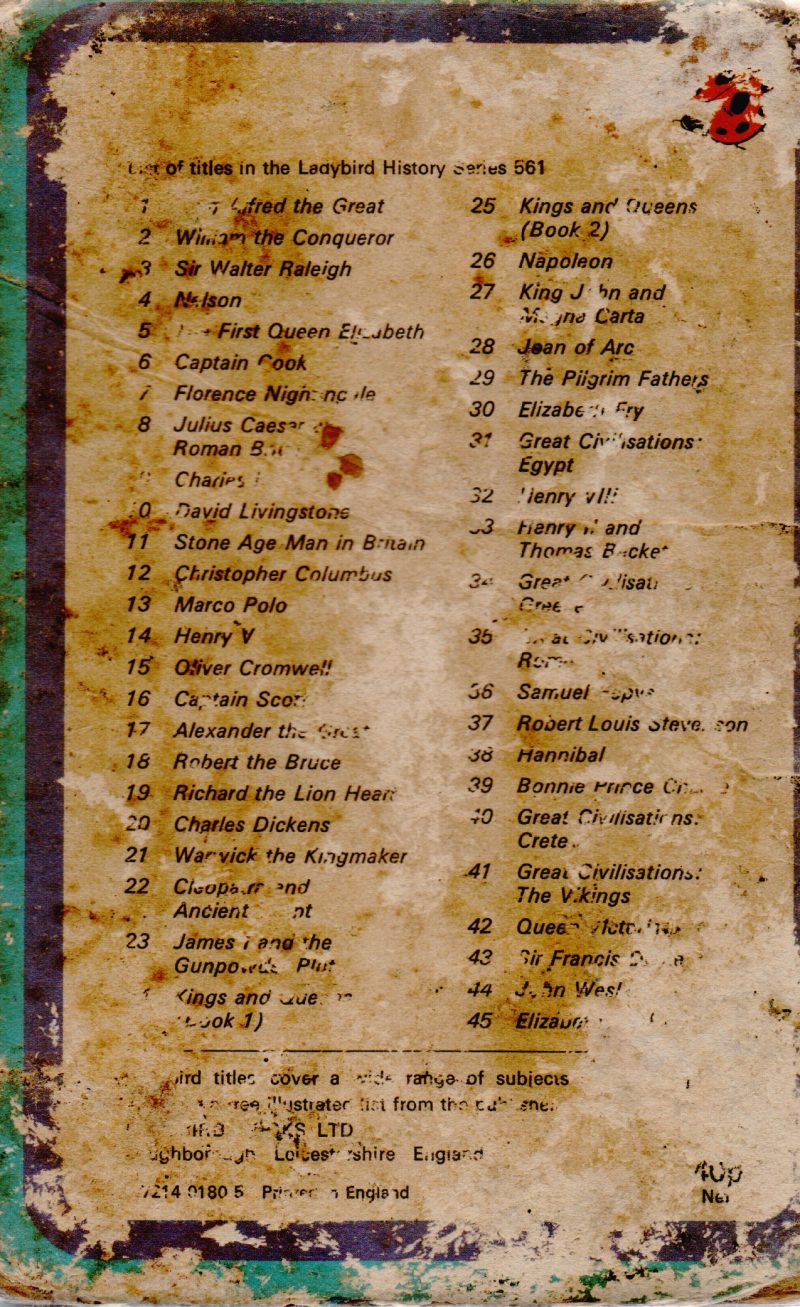 of titles in the Ladybird History Series 561
1 Alfred the Great
2 William the Conqueror
3 Sir Walter Raleigh
4 Nelson
5 First Queen Elizabeth
6 Captain Cook
7 Florence Nightingale
8 Julius Caesar
Roman
Charles
David Livingstone
11 Stone Age Man in Britain
12 Christopher Columbus
13 Marco Polo
14 Henry V
15 Oliver Cromwell
16 Captain Scott
17 Alexander the Great
18 Robert the Bruce
19 Richard the Lion Heart
20 Charles Dickens
21 Warwick the Kingmaker
22 Cleopatra and
Ancient
23 James I and the
Gunpowder Plot
Kings and Queens
(Book 1)
25 Kings and Queens
(Book 2)
26 Napoleon
27 King John and
Magna Carta
28 Joan of Arc
29 The Pilgrim Fathers
30 Elizabeth Fry
31 Great Civilisations:
Egypt
32 Henry VIII
33 Henry II and
Thomas Becket
34 Great Civilisations
Greece
35 Great Civilisations:
Rome
36 Samuel Pepys
37 Robert Louis Stevenson
38 Hannibal
39 Bonnie Prince
40 Great Civilisations:
Crete
41 Great Civilisations:
The Vikings
42 Queen Victoria
43 Sir Francis Drake
44 John
45
titles cover a wide range of subjects
free illustrated list from the publishers
LTD
Loughborough Leicestershire England
Printed in England
40p
Net